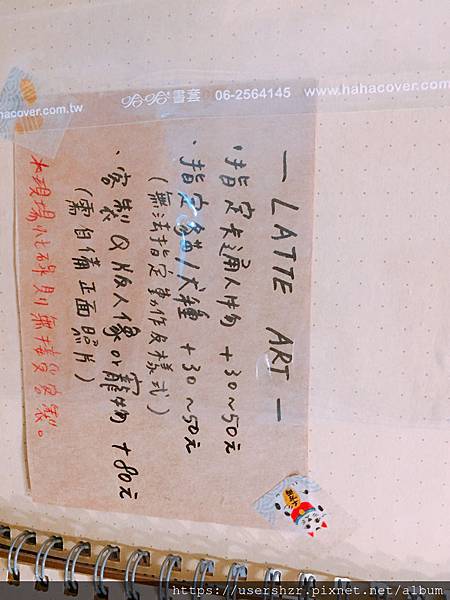 www.hahacover.com.tw
書套 06-2564145 www.hahacover.com
— LATTE ART —
・指定卡通人物 +30~50元
・指定貓/犬種 +30~50元
(無法指定動作及樣式)
・客製Q版人像or寵物 +80元
(需自備正面照片)
※現場忙碌則無接受客製。
https://usershzr.pixnet.net/album